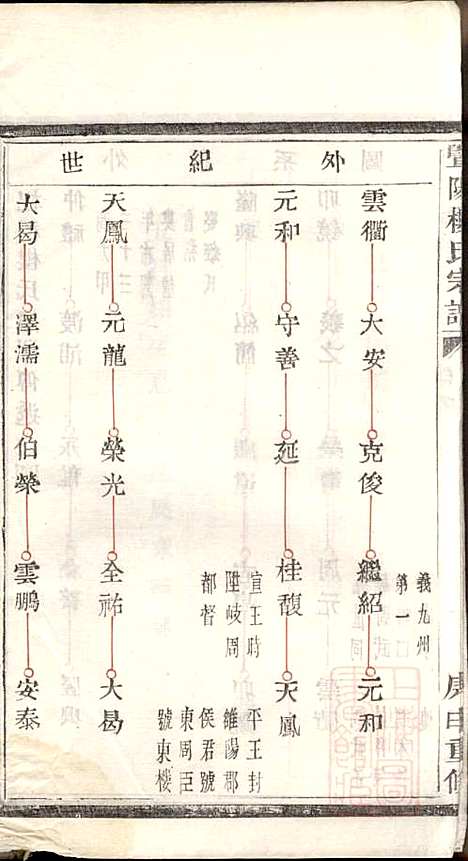 暨陽楊氏宗譜
庚申重修
外紀世
雲衢 大安 克俊 繼紹 元和
義九州
第一
元和 守善 延 桂馥 天鳳
宣王時
陞岐周
都督
平王封
維陽郡
侯君號
東周臣
號東樓
天鳳 元龍 榮光 全祐 大曷
大曷 澤濡 伯榮 雲鵬 安泰